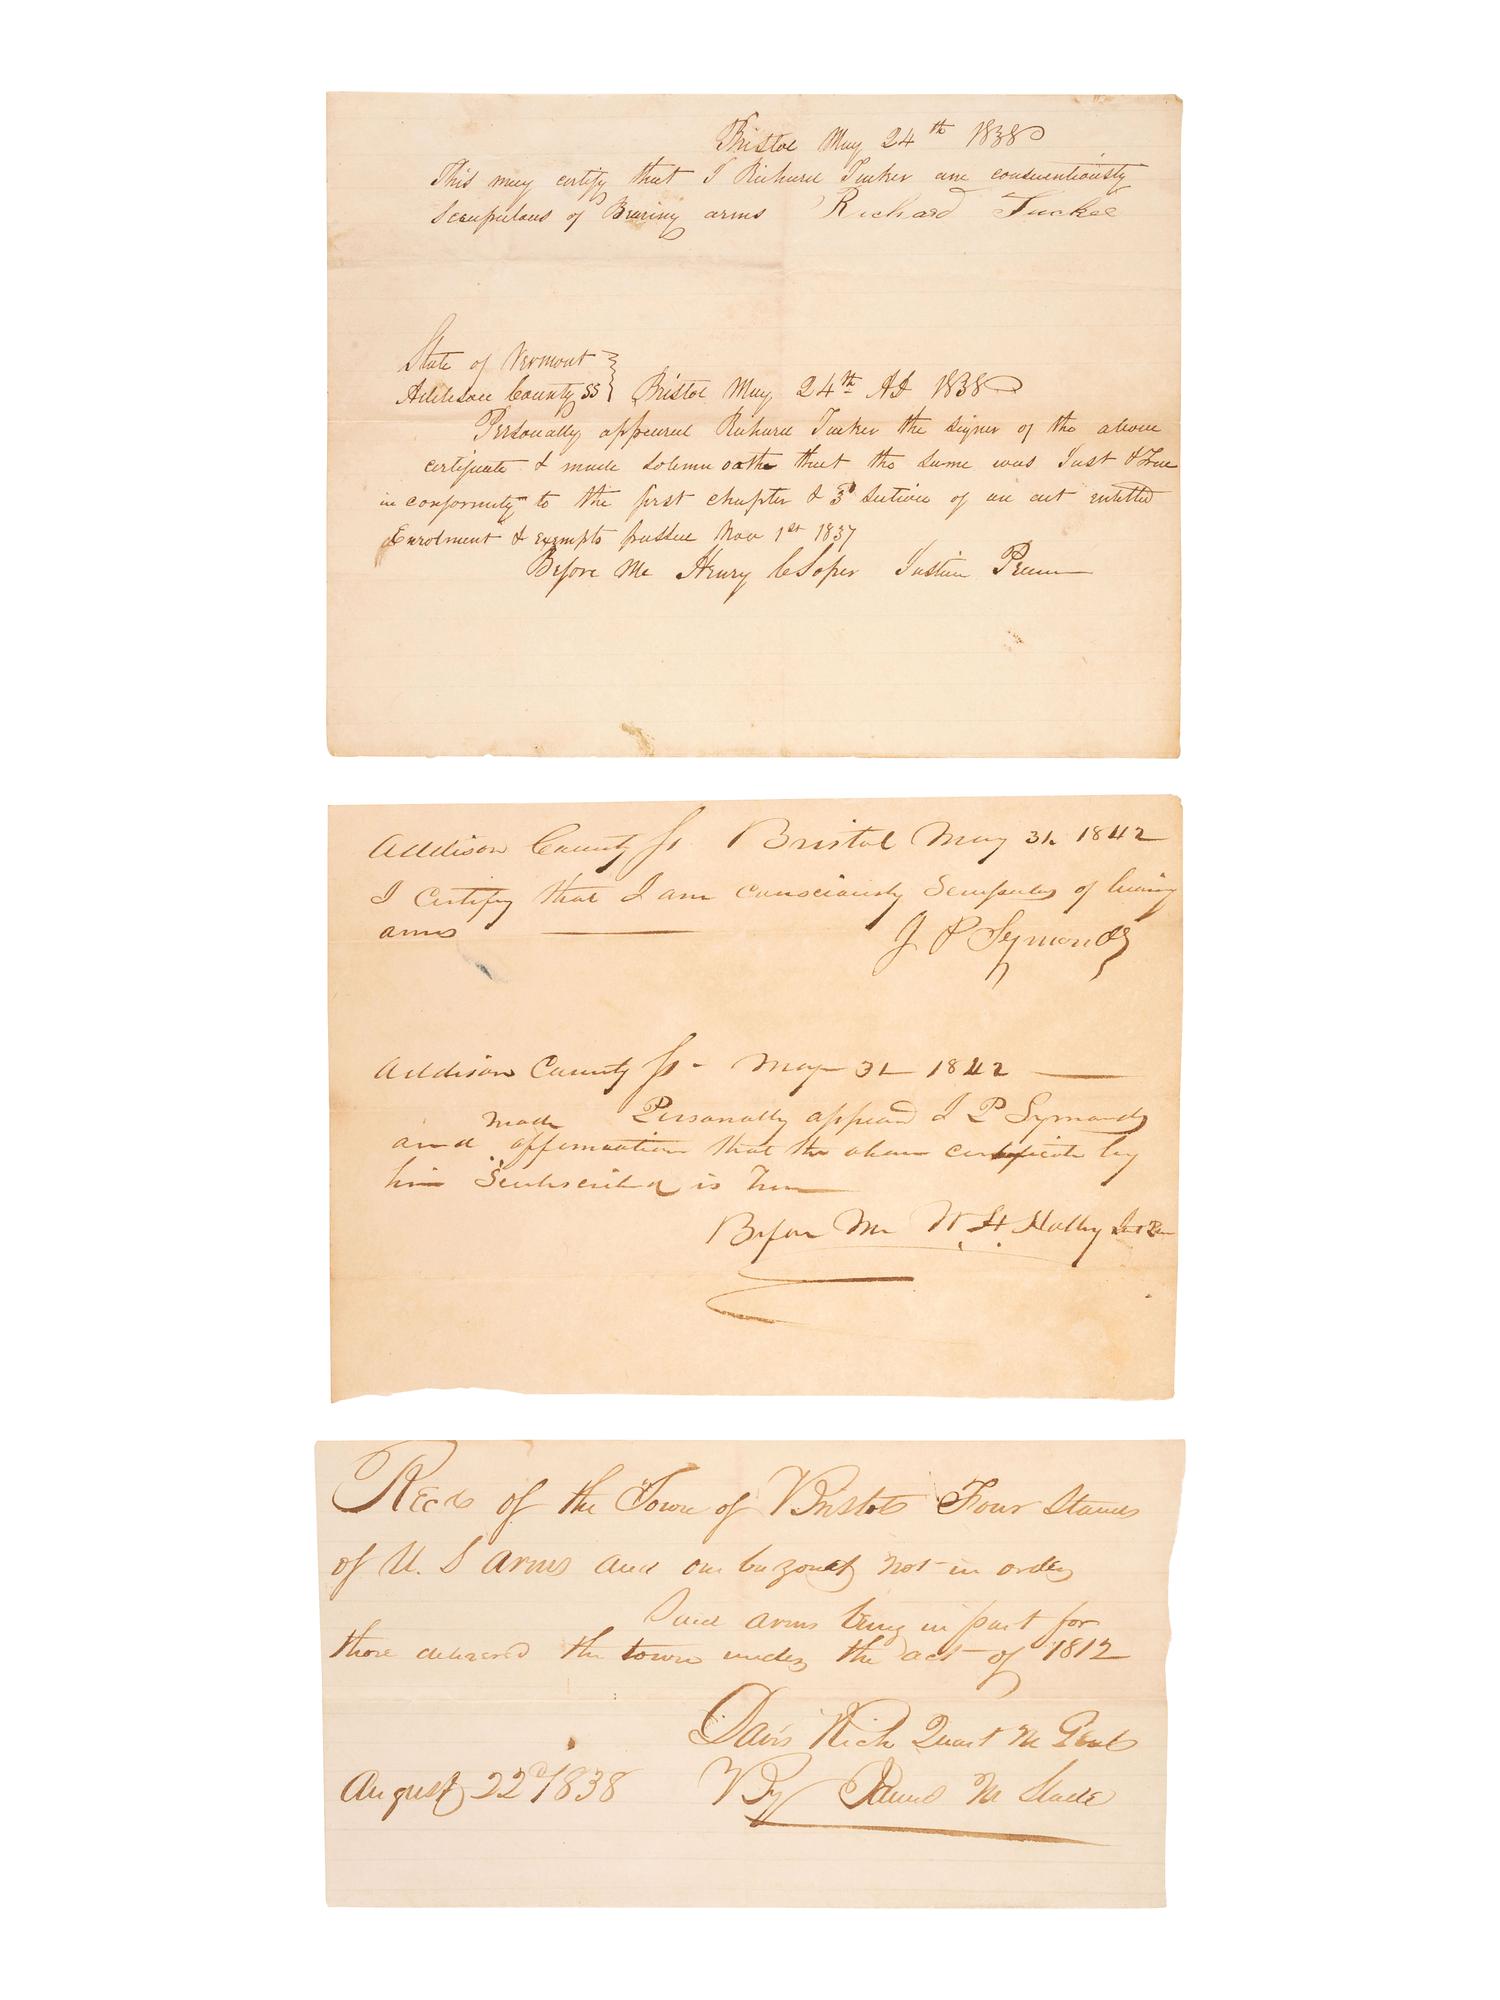 Bristol May 24th 1838
This may certify that I Richard Tucker am consientiously
Scrupulous of Bearing arms Richard Tucker
State of Vermont
Addison County SS Bristol May 24th AD 1838
Personally appeared Richard Tucker the signer of the above
certificate & made solemn oathe that the same was Just & True
in conformity to the first chapter & 3d section of an act entitled
Enrolment & exempts passed Nov 1st 1837
Before Me Henry C Soper Justice Peace
Addison County Ss Bristol May 31 1842
I Certify that I am Consciously Scrupulus of bearing
arms
J P Symonds
Addison County Ss - May 31 1842
Personally appeard J P Symonds
made
and affirmation that the above certificate by
him Subscribed is True
Before Me W H Holley Just Peace
Recd of the Town of Bristol Four Stands
of U. S arms and one bayonet not in order
Said arms being in part for
those delivered the town under the act of 1812
Davis Rich Quart M Genl
August 22d 1838 By James M Slade